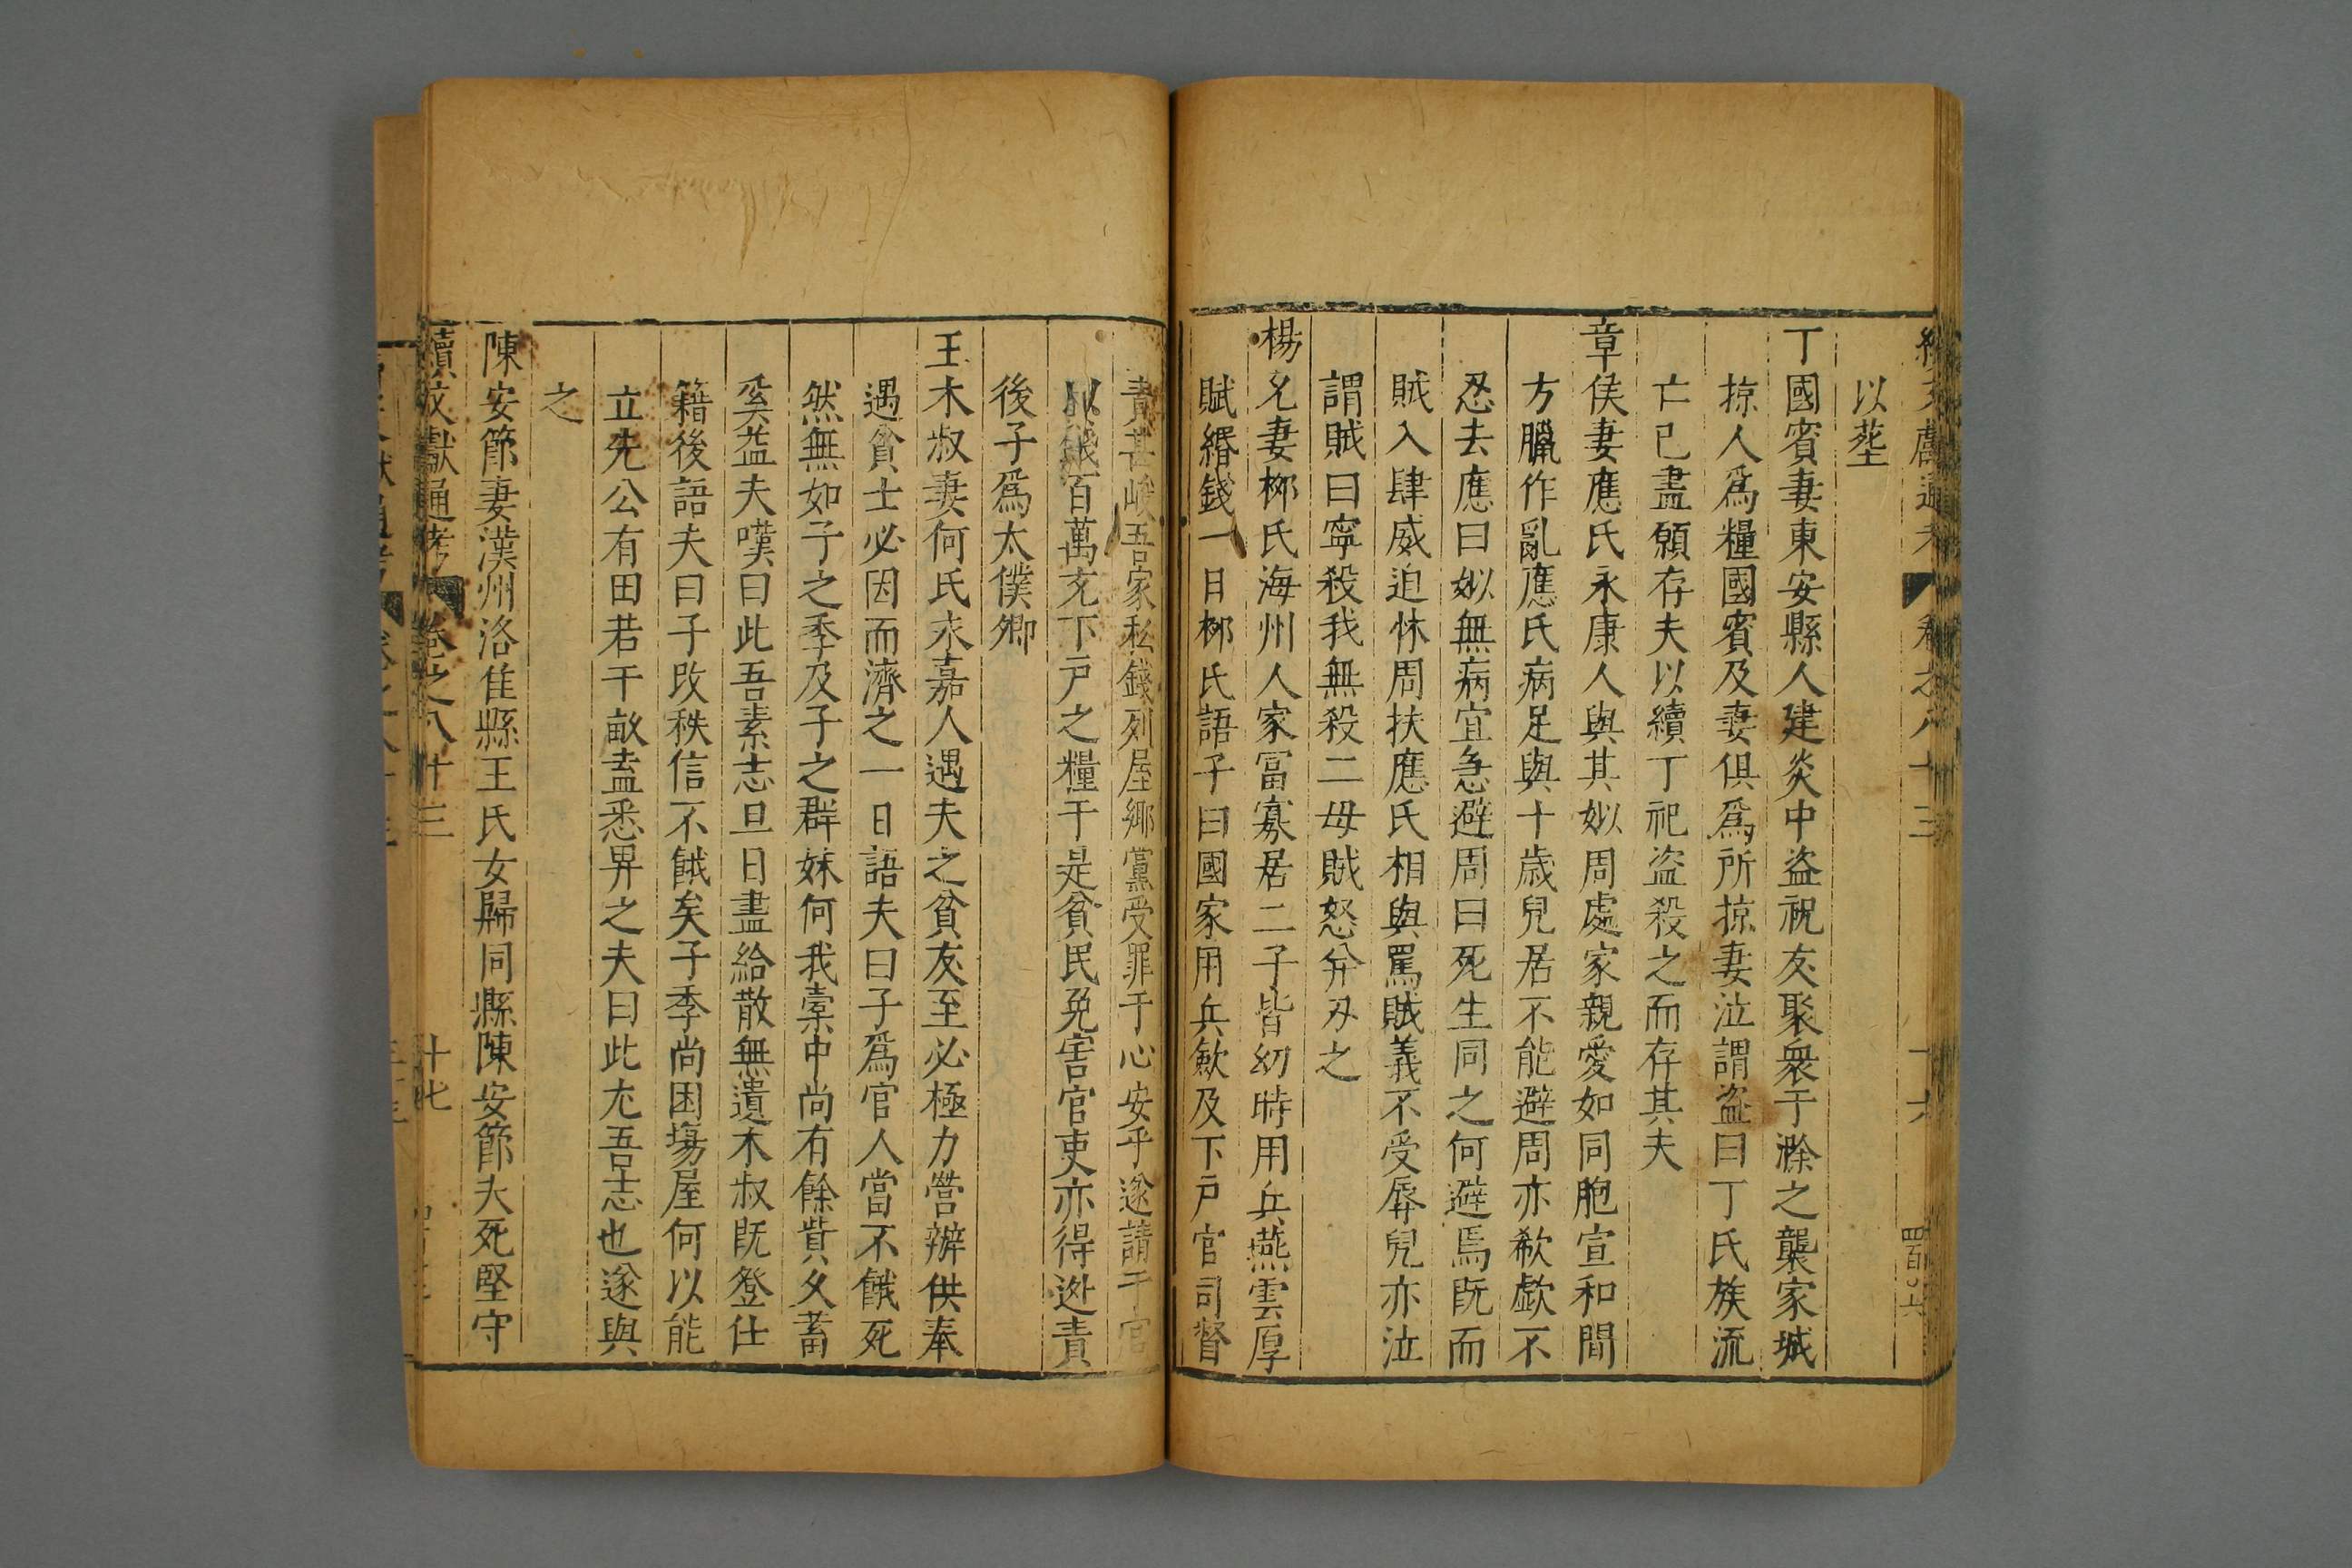 以塟
丁國賓妻東安縣人建炎中盗祝友聚衆于滁之襲家城
掠人爲糧國賓及妻俱爲所掠妻泣謂盗曰丁氏族流
亡已盡願存夫以續丁祀盗殺之而存其夫
章侯妻應氏永康人與其姒周處家親愛如同胞宣和間
方臘作亂應氏病足與十歳兒居不能避周亦欷歔不
忍去應曰姒無病宜急避周曰死生同之何避焉既而
賊入肆威迫怵周扶應氏相與罵賊義不受辱兒亦泣
謂賊曰寧殺我無殺二母賊怒并刃之
楊兊妻栁氏海州人家冨寡居二子皆幼時用兵燕雲厚
賦緡錢一日栁氏語子曰國家用兵歛及下戸官司督
責甚峻吾家私錢列屋鄉黨受罪于心安乎遂請于官
以錢百萬充下戸之糧于是貧民免害官吏亦得逃責
後子爲太僕卿
王木叔妻何氏永嘉人遇夫之貧友至必極力營辦供奉
遇貧士必因而濟之一日語夫曰子爲官人當不餓死
然無如子之季及子之群妹何我槖中尚有餘貲久蓄
奚益夫嘆曰此吾素志旦日盡給散無遺木叔既登仕
籍後語夫曰子改秩信不餓矣子季尚困塲屋何以能
立先公有田若干畝盍悉畀之夫曰此尤吾志也遂與
之
陳安節妻漢州洛隹縣王氏女歸同縣陳安節夫死堅守
續文獻通考 卷之八十三 十七